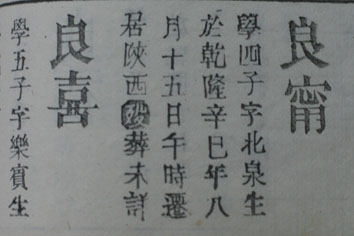 良甯
學四子字北泉生
於乾隆辛巳年八
月十五日午時遷
居陝西歿葬未詳
良喜
學五子字樂賓生